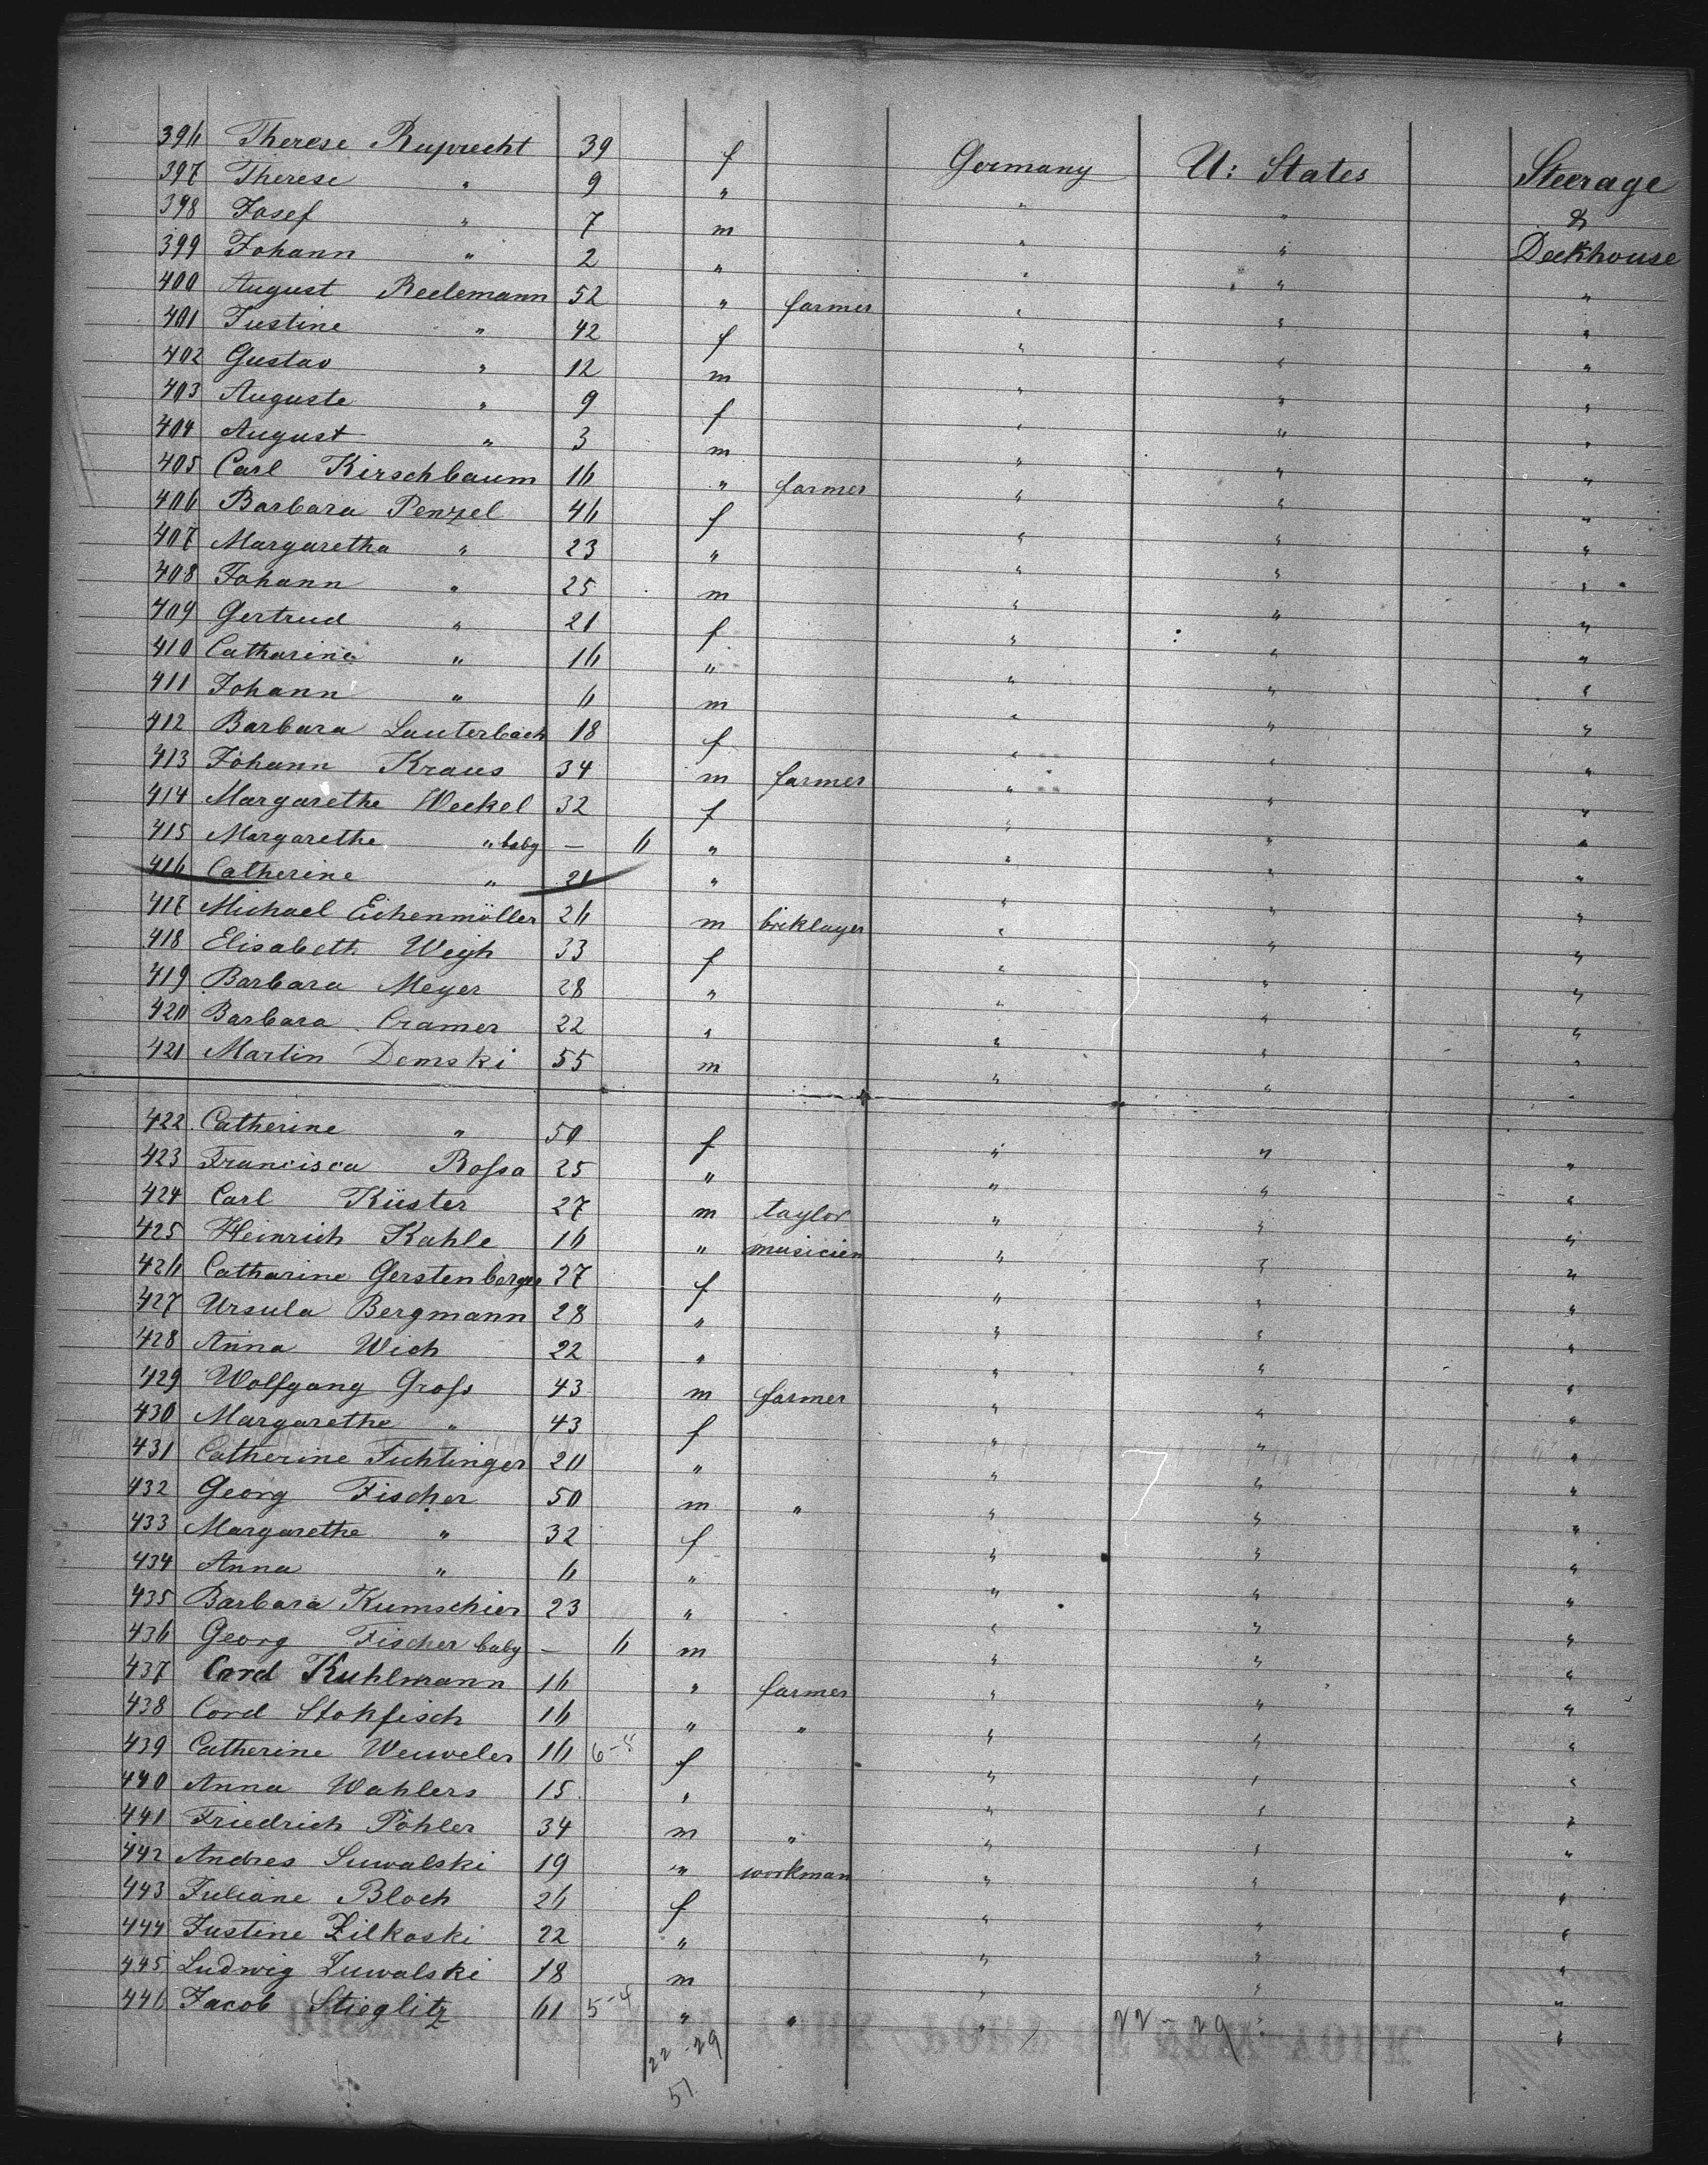 396 Therese Ruprecht 39 f Germany U: States Steerage
397 Therese " 9 " " " &
398 Josef " 7 m " " Deckhouse
399 Johann " 2 " " " "
400 August Reelemann 52 " farmer " " "
401 Justine " 42 f " " "
402 Gustav " 12 m " " "
403 Auguste " 9 f " " "
404 August " 3 m " " "
405 Carl Kirschbaum 16 " farmer " " "
406 Barbara Penzel 46 f " " "
407 Margaretha " 23 " " " "
408 Johann " 25 m " " "
409 Gertrud " 21 f " " "
410 Catharina " 16 " " " "
411 Johann " 6 m " " "
412 Barbara Lauterbach 18 f " " "
413 Johann Kraus 34 m farmer " " "
414 Margarethe Weckel 32 f " " "
415 Margarethe " baby — 6 " " " "
416 Catherine " 21 " " " "
417 Michael Eichenmöller 26 m bricklayer " " "
418 Elisabeth Weigh 33 f " " "
419 Barbara Meyer 28 " " " "
420 Barbara Cramer 22 " " " "
421 Martin Demski 55 m " " "
422 Catherine " 50 f " " "
423 Francisca Rossa 25 " " " "
424 Carl Küster 27 m taylor " " "
425 Heinrich Kahle 16 " musicien " " "
426 Catharine Gerstenberger 27 f " " "
427 Ursula Bergmann 28 " " " "
428 Anna Wich 22 " " " "
429 Wolfgang Gross 43 m farmer " " "
430 Margarethe " 43 f " " "
431 Catherine Fichtinger 20 " " " "
432 Georg Fischer 50 m " " " "
433 Margarethe " 32 f " " "
434 Anna " 6 " " " "
435 Barbara Kumschier 23 " " " "
436 Georg Fischer baby — 6 m " " "
437 Cord Kuhlmann 16 " farmer " " "
438 Cord Stokfisch 16 " " " " "
439 Catherine Weuweler 16 f " " "
440 Anna Wahlers 15 " " " "
441 Friedrich Pöhler 34 m " " " "
442 Andres Suwalski 19 " workman " " "
443 Juliane Bloch 26 f " " "
444 Justine Zilkoski 22 " " " "
445 Ludwig Zuwalski 18 m " " "
446 Jacob Stieglitz 61 5-4 " " " " "
22-29 22-29
51